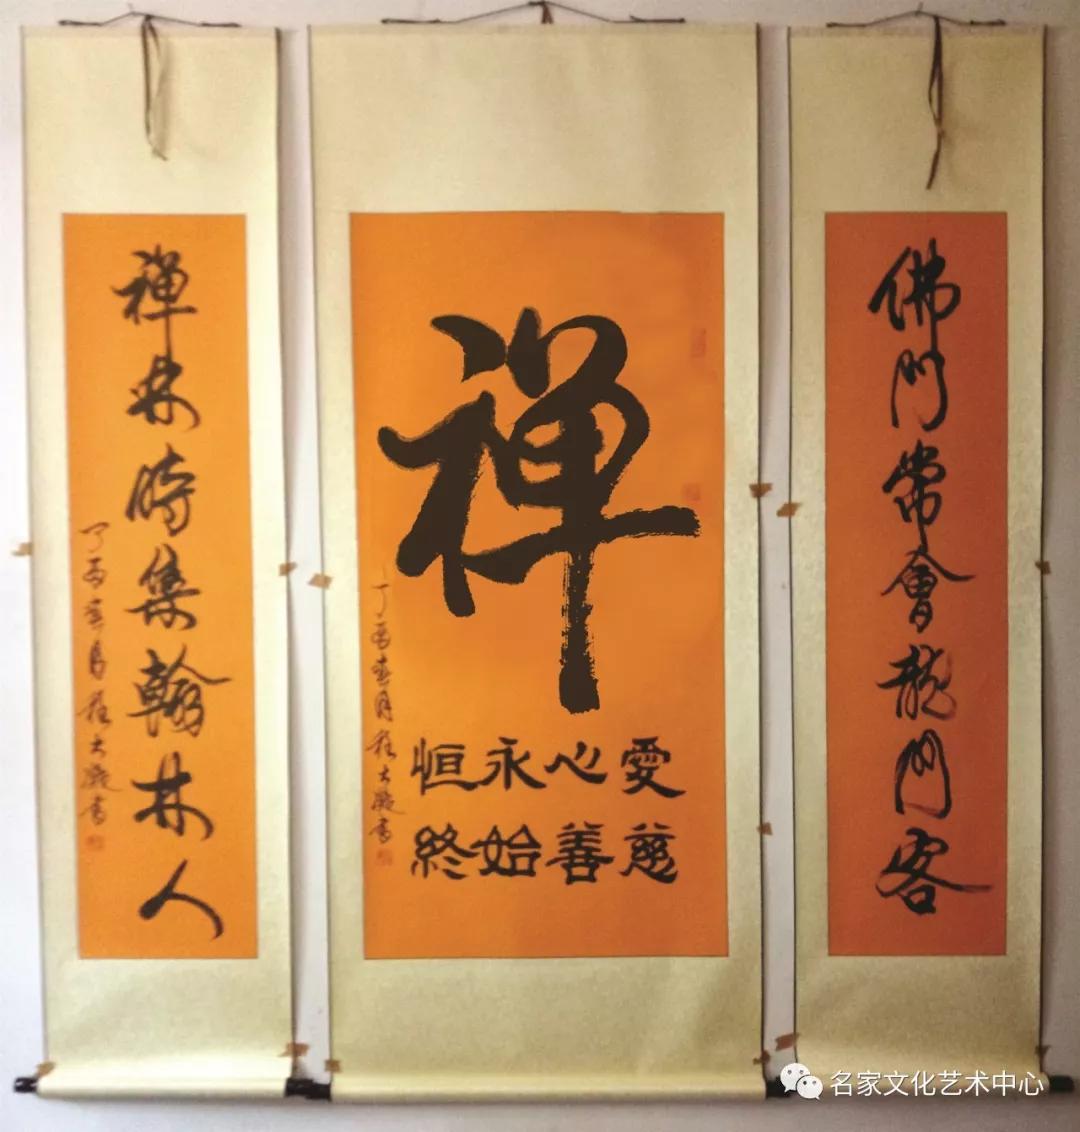 佛門常會龍門客
禅
愛心永恒
慈善始終
丁酉春月 大 書
禅林時集翰林人
丁酉春月 大 書
名家文化艺术中心